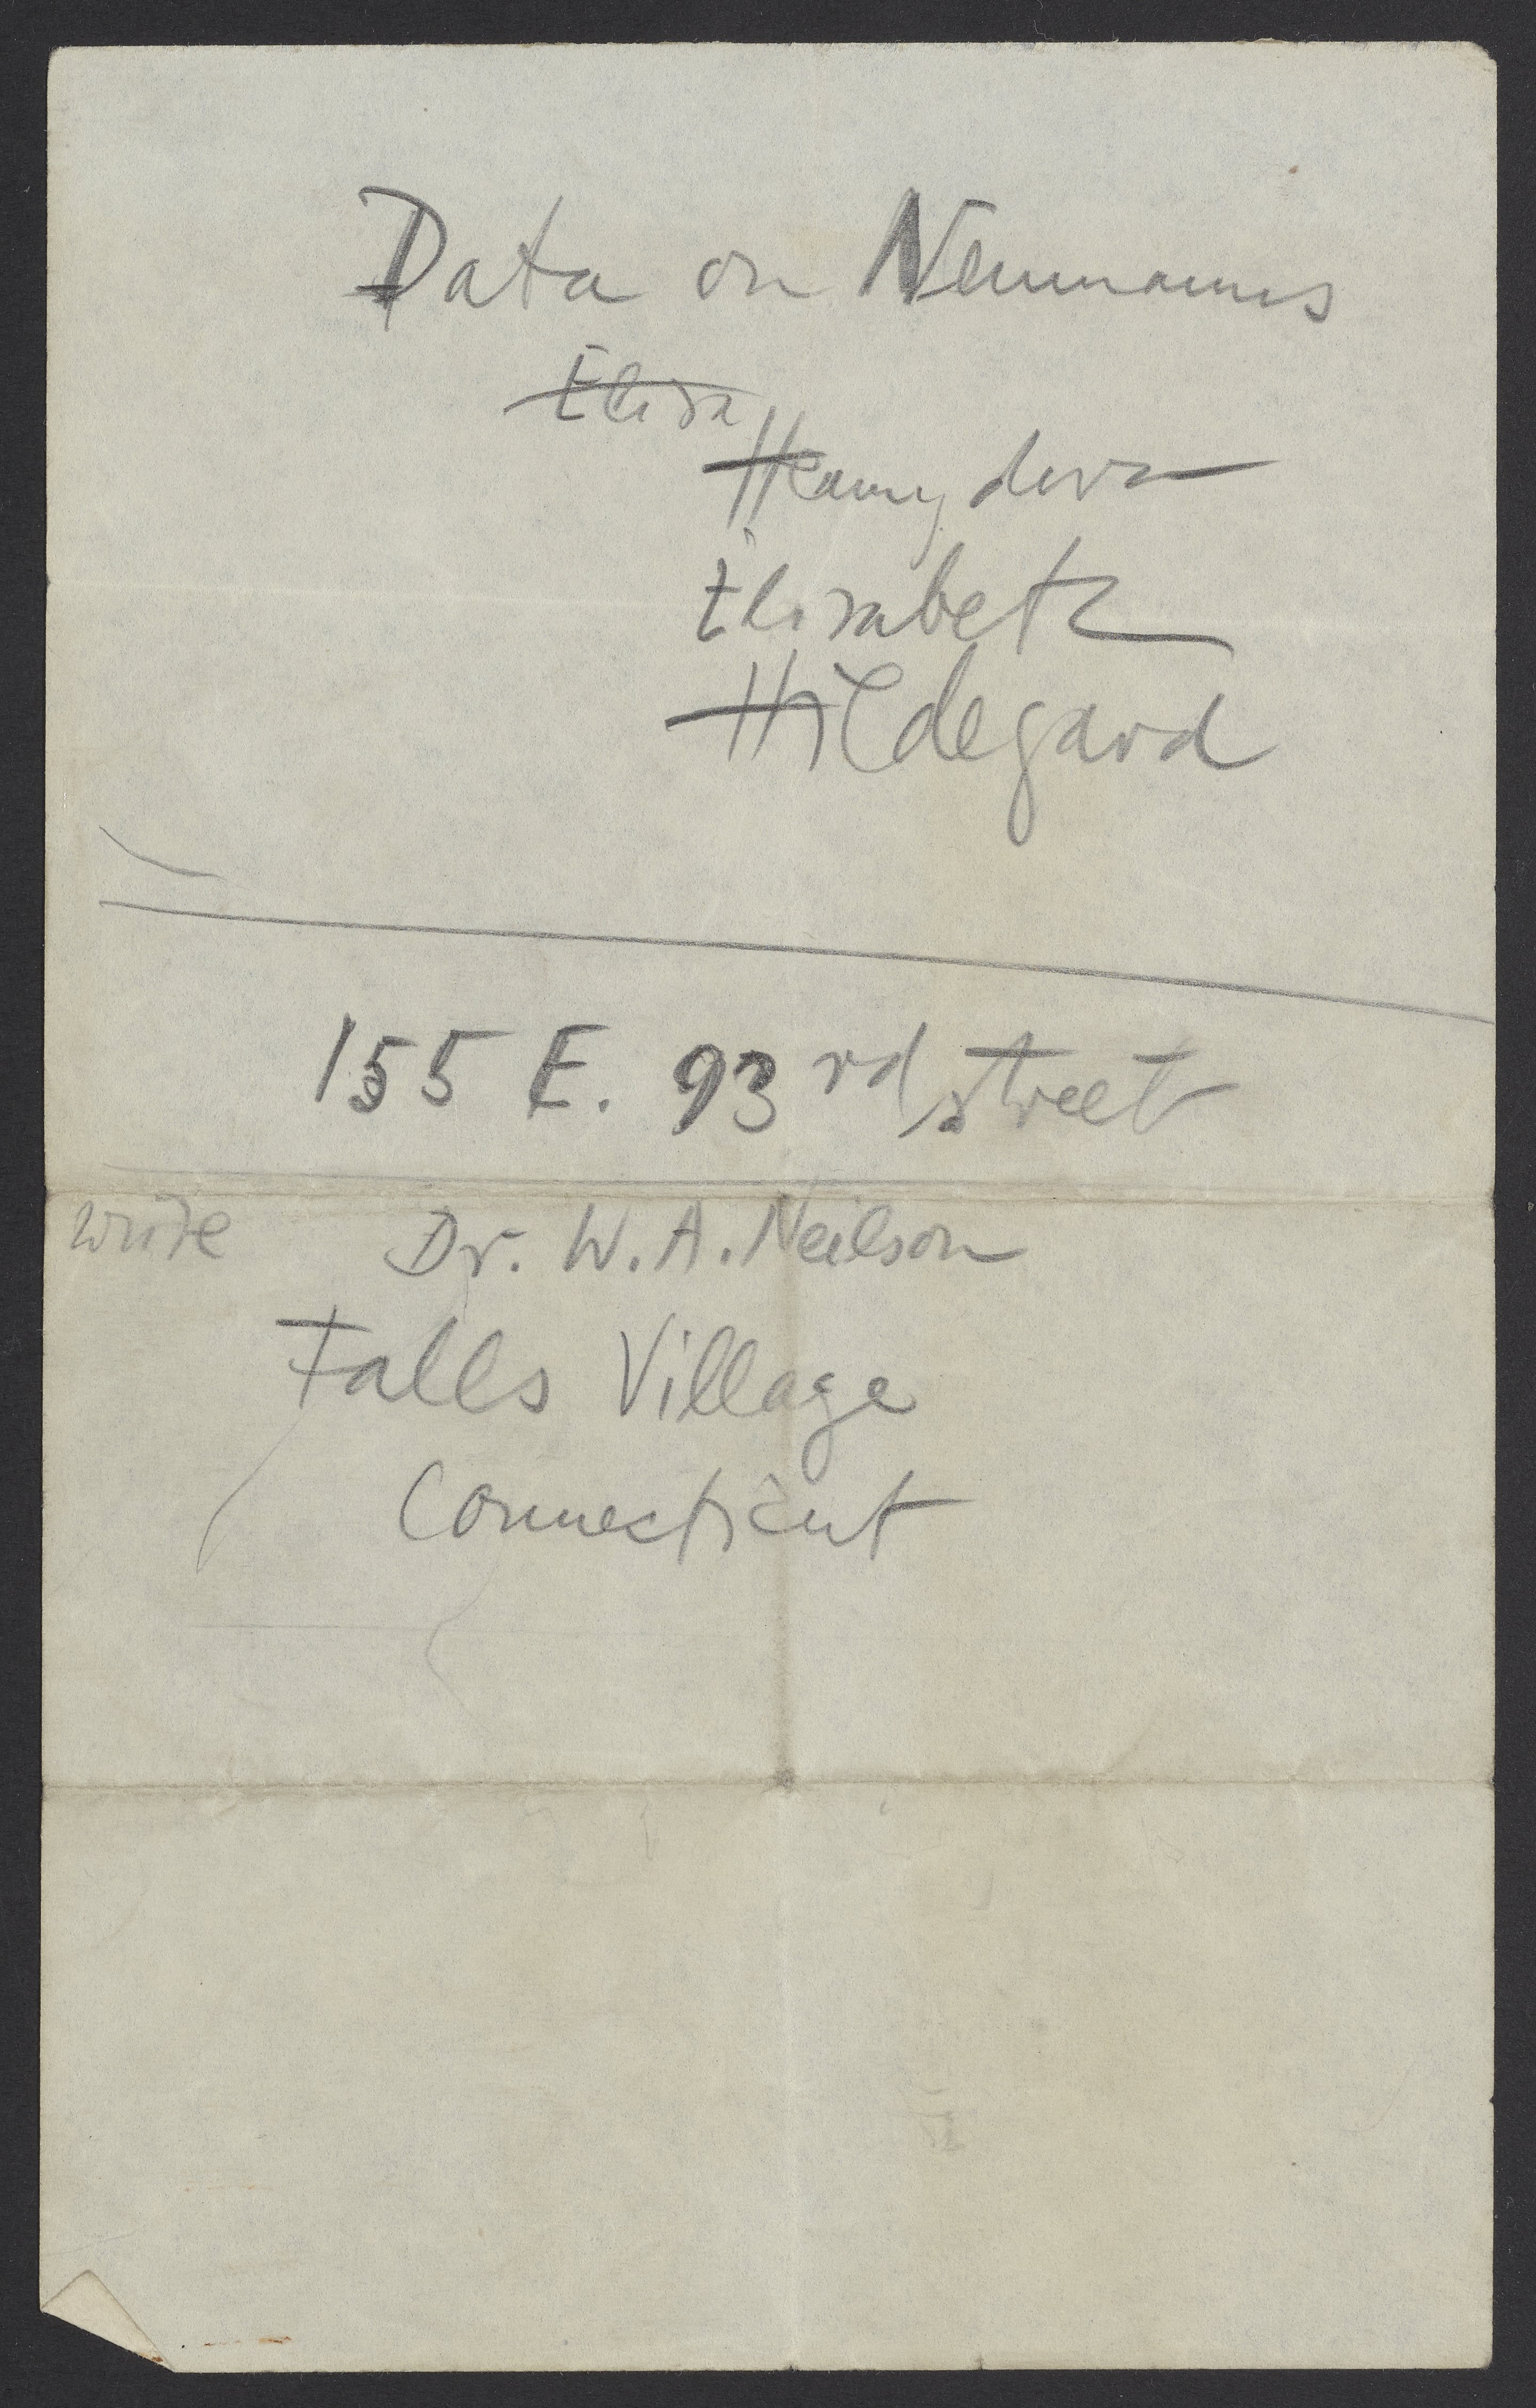 Data on Neumanns
Elisa
Henry
Elisabeth
Hildegard
155 E. 93rd street
write Dr. W. A. Neilson
Falls Village
Connecticut